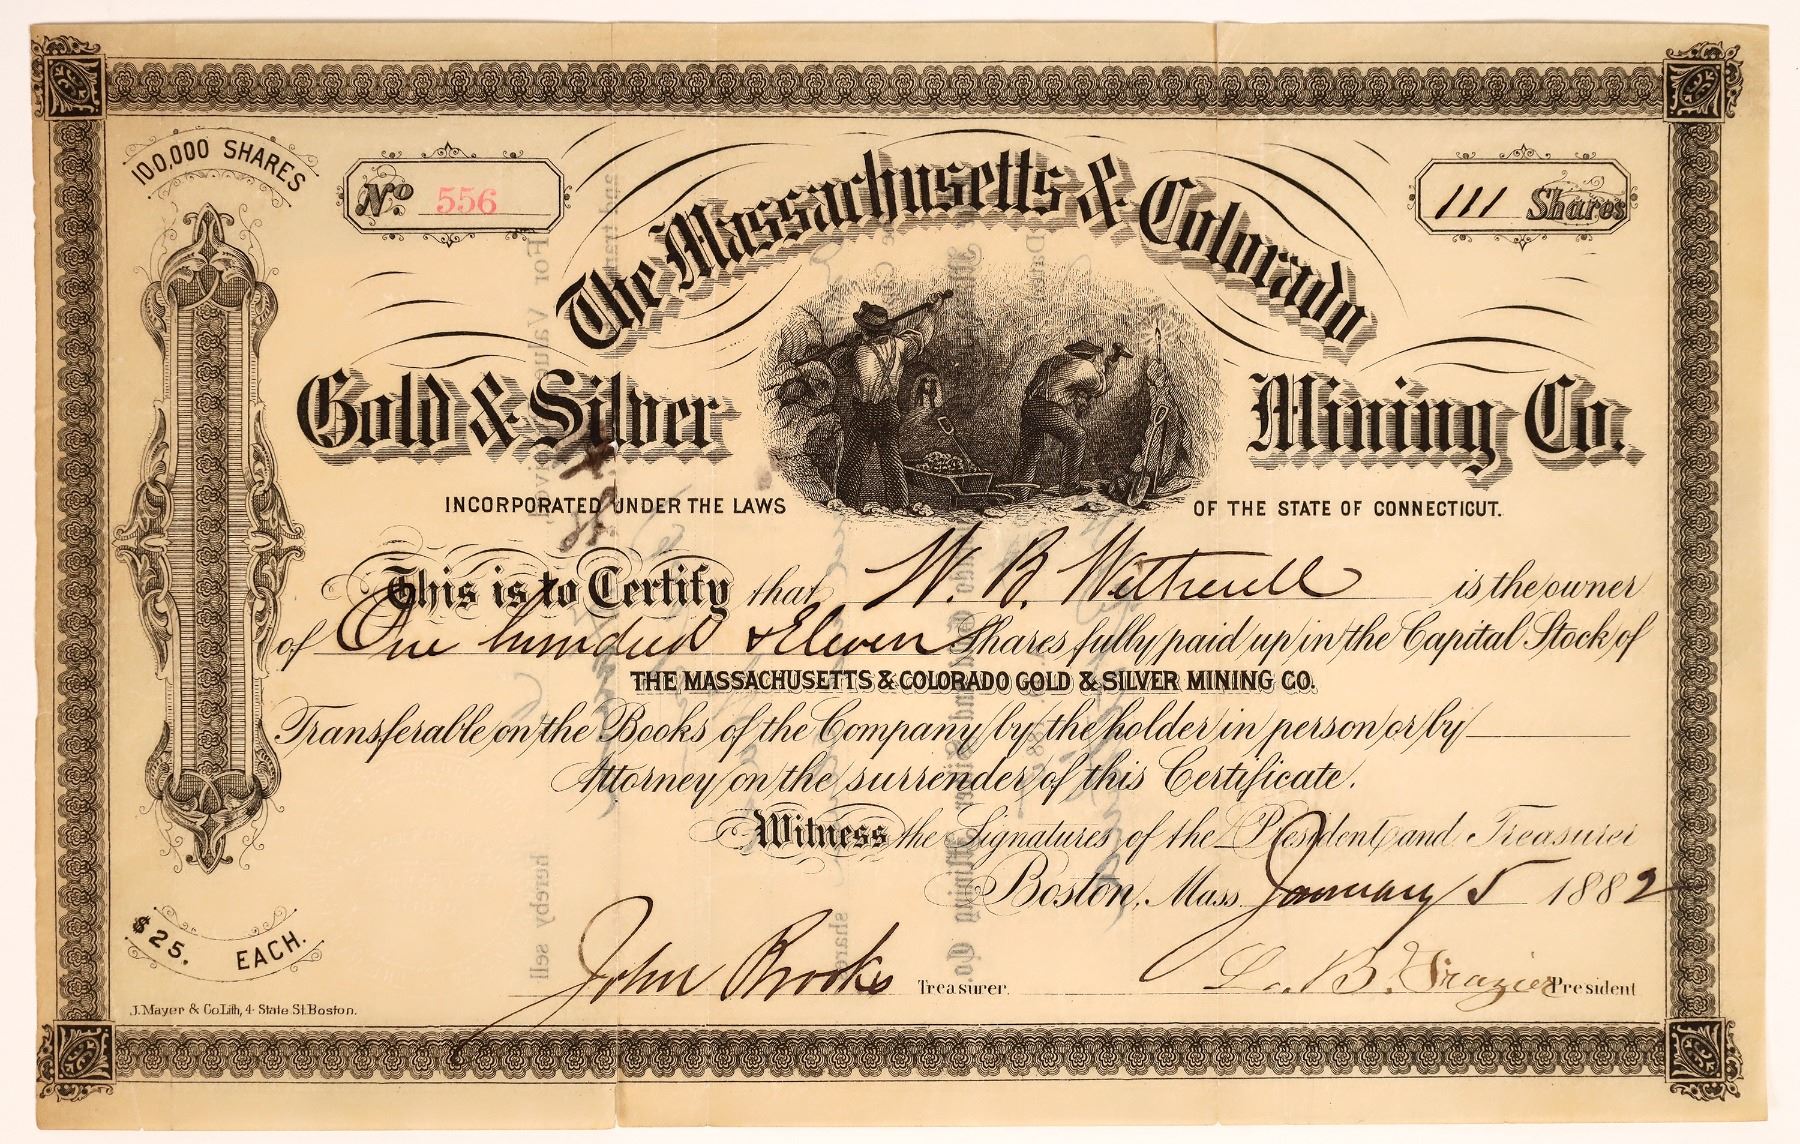 100,000 SHARES
No. 556
111 Shares
The Massachusetts & Colorado
Gold & Silver Mining Co.
INCORPORATED UNDER THE LAWS OF THE STATE OF CONNECTICUT.
This is to Certify that W. B. Witherell is the owner
of One hundred & Eleven Shares fully paid up in the Capital Stock of
THE MASSACHUSETTS & COLORADO GOLD & SILVER MINING CO.
Transferable on the Books of the Company by the holder in person or by
Attorney on the surrender of this Certificate.
Witness the Signatures of the President and Treasurer
Boston, Mass. January 5 1882
$25. EACH.
John Brooks Treasurer. L. B. Frazier President
J. Mayer & Co. Lith, 4 State St. Boston.